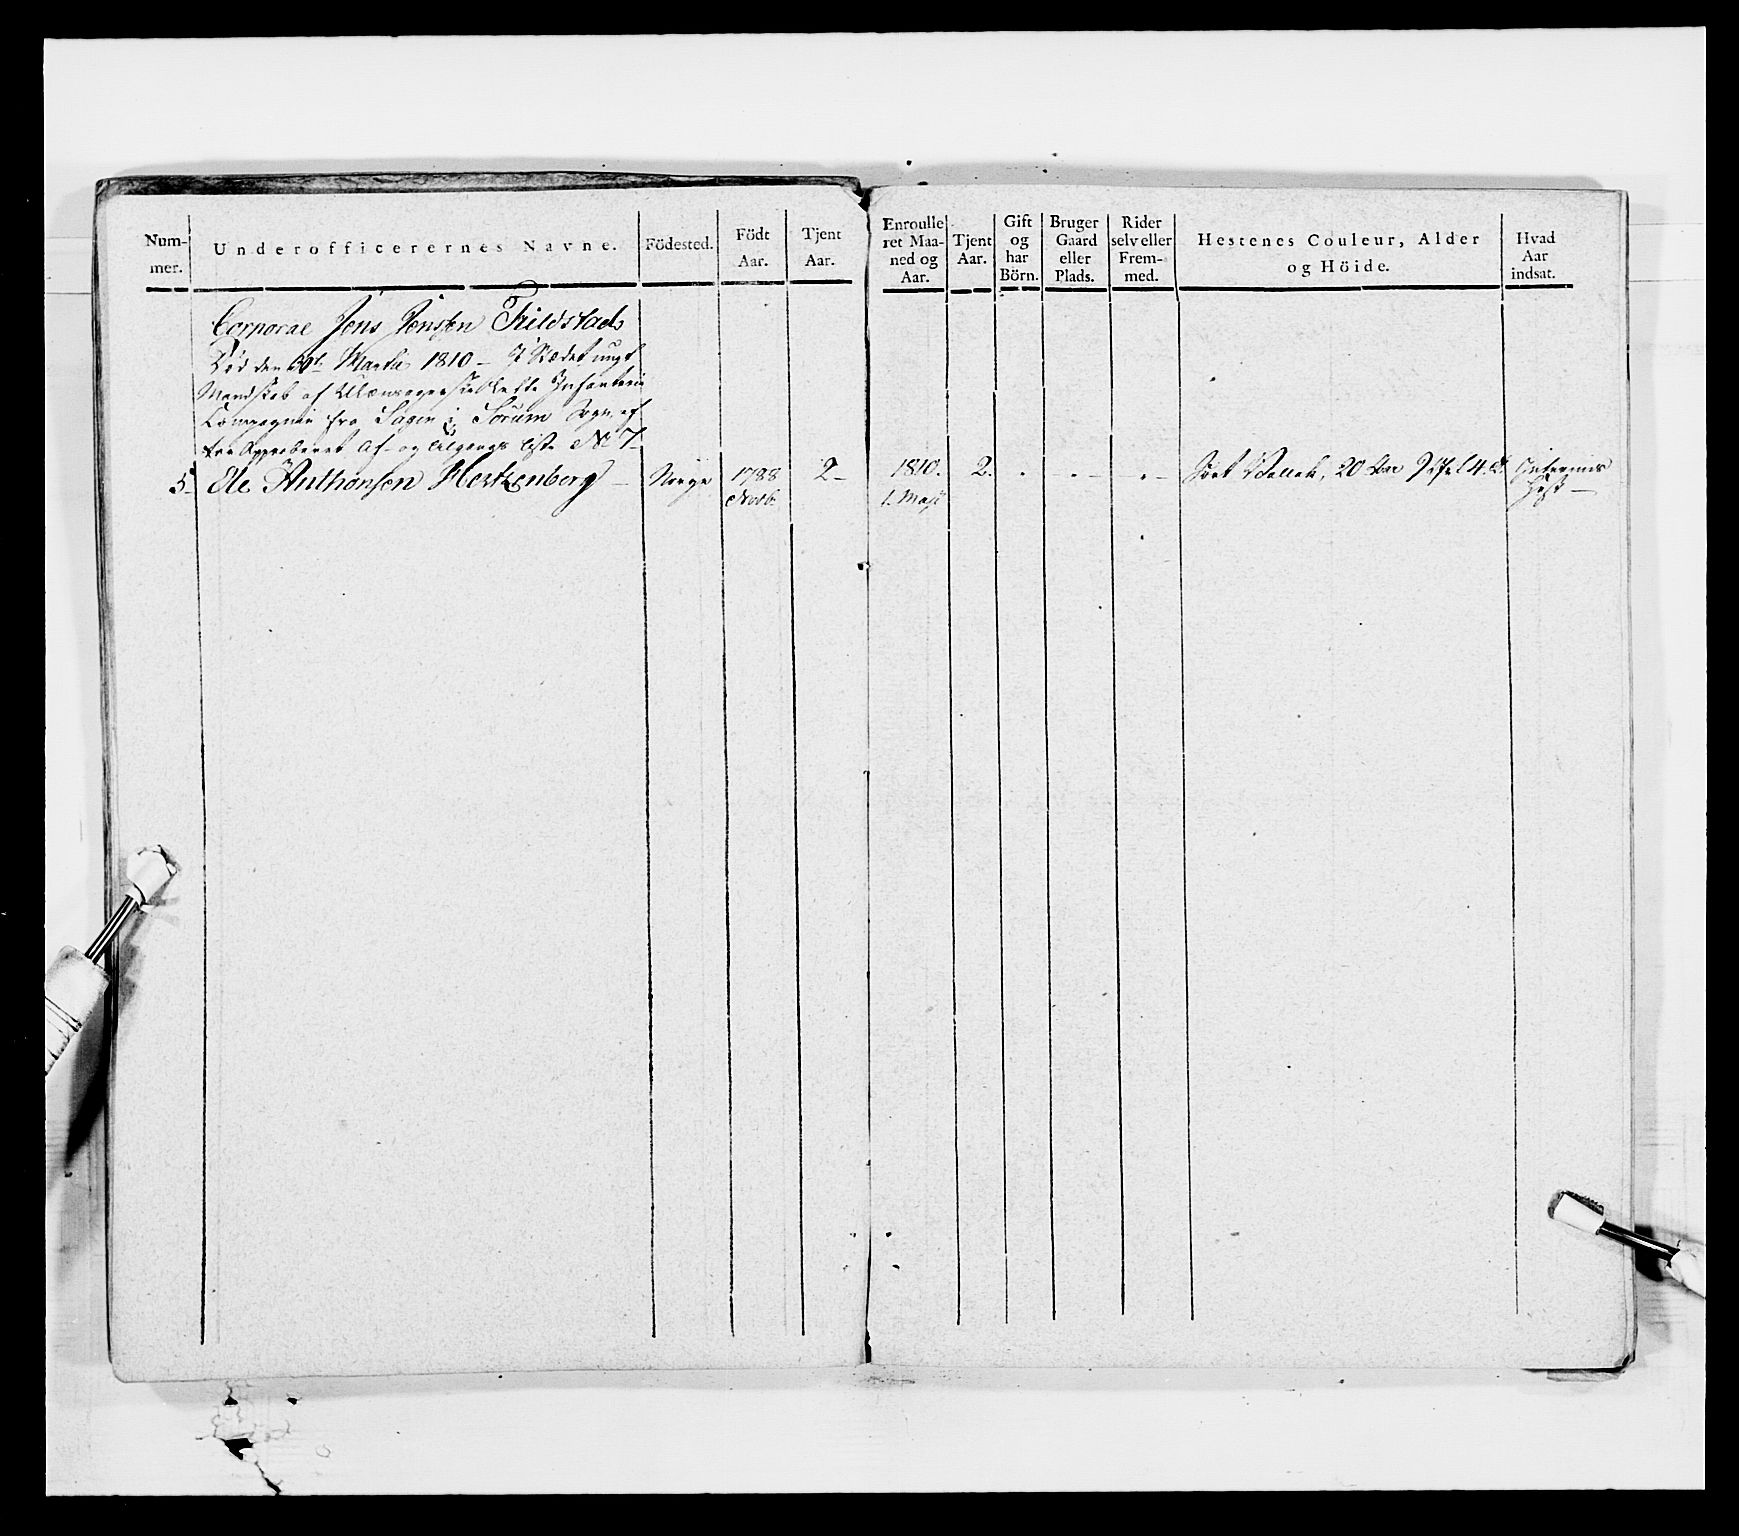 Num-
mer.
Underofficerernes Navne.
Födested.
Födt
Aar.
Tjent
Aar.
Enroulle
ret Maa-
ned og
Aar.
Tjent
Aar.
Gift
og
har
Börn.
Bruger
Gaard
eller
Plads.
Rider
selv eller
Frem-
med.
Hestenes Couleur, Alder
og Höide.
Hvad
Aar
indsat.
Corporal Jens Jensen Frildstad
Död den 30te Martii 1810 - I Stædet ungt
Mandskab af Infanterie
Compagnie fra Sagen i Sörum Sogn, ef
ter Approberet Af- og tilgangs Liste No 7
5- Ole Anthonsen Hertzenberg - Norge 1788 2- 1810. 2. Sort Vallak, 20 Aar Interims
Novb. 1. Maji Hest -